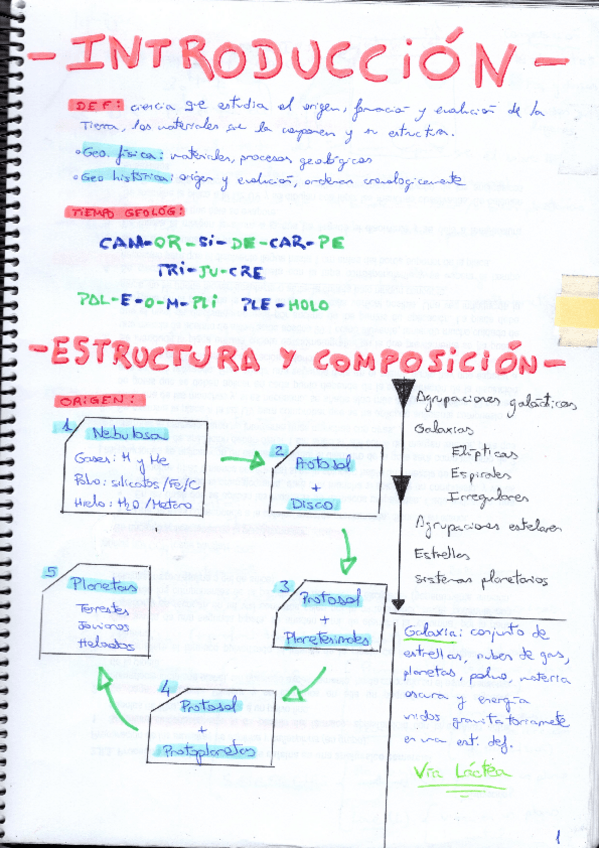 - INTRODUCCIÓN -
DEF: ciencia que estudia el origen, formación y evolución de la
Tierra, los materiales que la componen y su estructura.
Geo. física: materiales, procesos geológicos
Geo histórica: origen y evolución, ordenan cronológicamente
TIEMPO GEOLÓG:
CAM-OR-Si-DE-CAR-PE
TRi-JU-CRE
PAL-E-O-M-PLi PLE-HOLO
-ESTRUCTURA Y COMPOSICIÓN-
ORIGEN:
1 Nebulosa
Gases: H y He
Polvo: silicatos/Fe/C
Hielo: H2O/Metano
2 Protosol
+
Disco
3 Protosol
+
Planetesimales
4 Protosol
+
Protoplanetas
5 Planetas
Terrestres
Jovianos
Helados
Agrupaciones galácticas
Galaxias
Elípticas
Espirales
Irregulares
Agrupaciones estelares
Estrellas
Sistemas planetarios
Galaxia: conjunto de
estrellas, nubes de gas,
planetas, polvo, materia
oscura y energía
unidos gravitatoriamente
en una est. def.
Vía Láctea
1